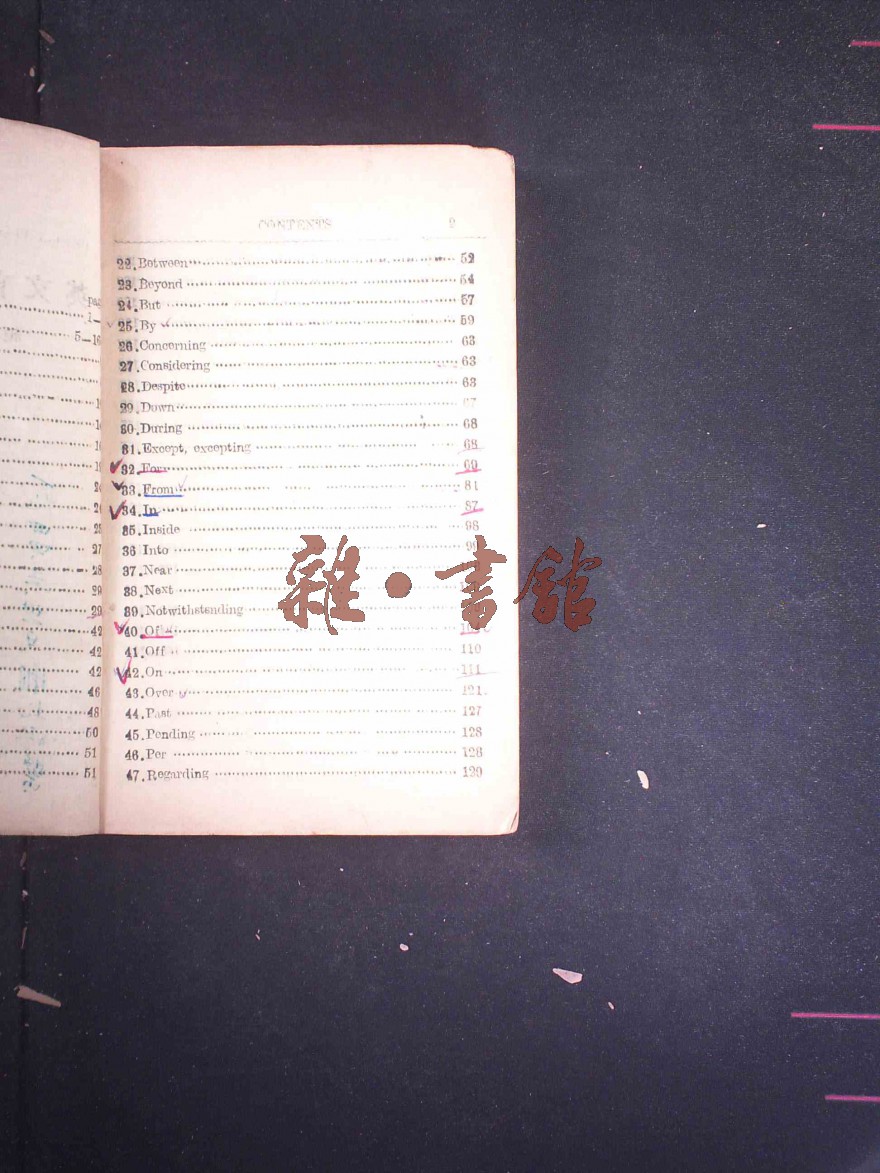 pa
1—
5—16
27
28
29
29
42
42
42
46
48
50
51
51
CONTENTS 2
22.Between 52
23.Beyond 54
24.But 57
25.By 59
26.Concerning 63
27.Considering 63
28.Despite 63
29.Down 67
30.During 68
31.Except, excepting 68
32.For 69
33.From 81
34.In 87
35.Inside 98
36 Into 99
37.Near
38.Next
39.Notwithstending
40.Of
41.Off 110
42.On 111
43.Over 121
44.Past 127
45.Pending 128
46.Per 128
47.Regarding 129
雜·書館